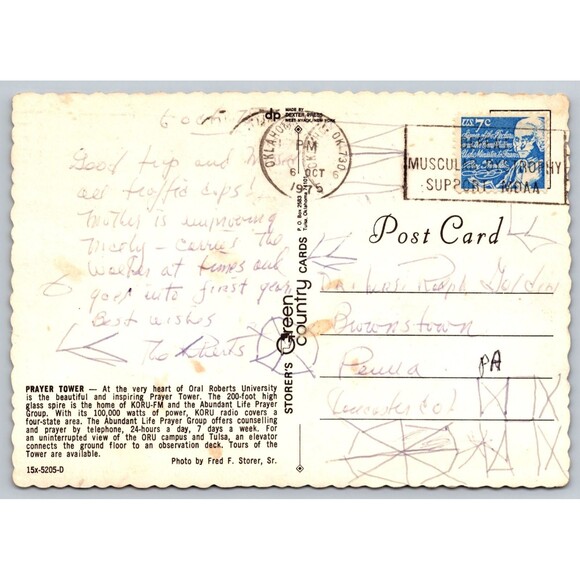 6 Oct
Good trip and
all traffic cops!
Mother is improving
nicely - carries the
walker at times and
goes into first gear
Best wishes
Roberts
PRAYER TOWER — At the very heart of Oral Roberts University
is the beautiful and inspiring Prayer Tower. The 200-foot high
glass spire is the home of KORU-FM and the Abundant Life Prayer
Group. With its 100,000 watts of power, KORU radio covers a
four-state area. The Abundant Life Prayer Group offers counselling
and prayer by telephone, 24-hours a day, 7 days a week. For
an uninterrupted view of the ORU campus and Tulsa, an elevator
connects the ground floor to an observation deck. Tours of the
Tower are available.
Photo by Fred F. Storer, Sr.
15x-5205-D
dp
MADE BY
DEXTER PRESS
WEST NYACK, NEW YORK
STORER'S Green country CARDS
P. O. Box 2583
Tulsa, Oklahoma 74101
OKLAHOMA OK 730
PM
6 OCT
1975
U.S. 7c
MUSCULAR DYSTROPHY
SUPPORT MDAA
Post Card
Ralph
Brownstown
Penna PA
Lancaster Co